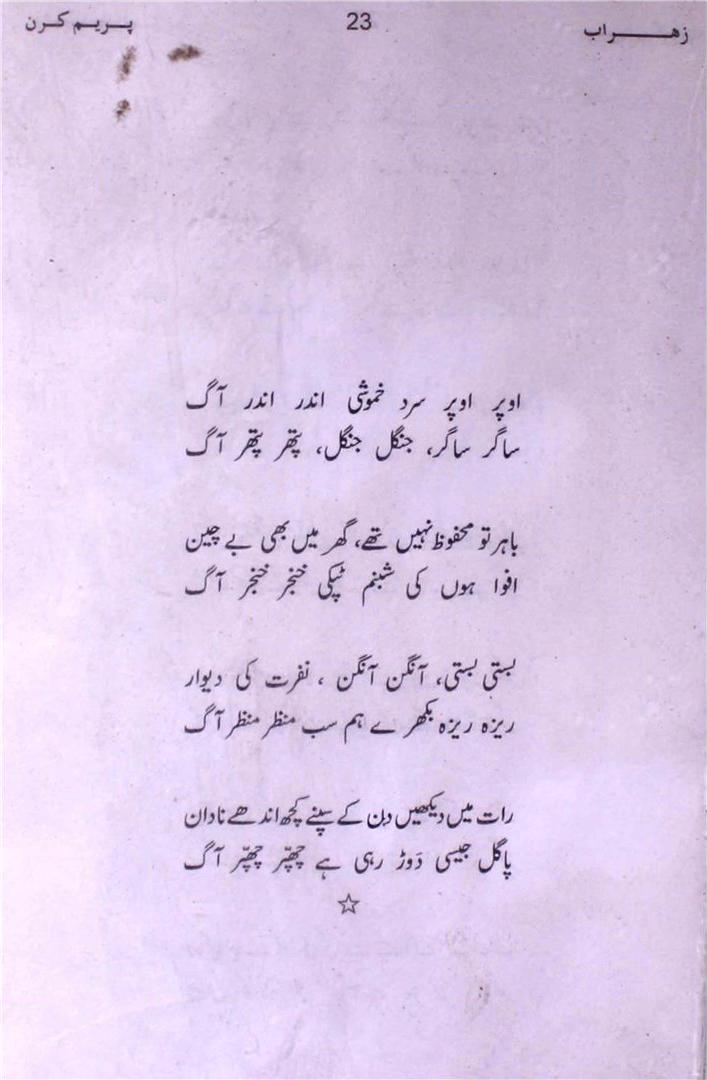 زهـــــراب
23
پـریـم کـرن
اوپر اوپر سرد خموشی اندر اندر آگ
ساگر ساگر، جنگل جنگل، پتھر پتھر آگ
باہر تو محفوظ نہیں تھے، گھر میں بھی بے چین
افوا ہوں کی شبنم ٹپکی خنجر خنجر آگ
بستی بستی، آنگن آنگن ، نفرت کی دیوار
ریزہ ریزہ بکھرے ہم سب منظر منظر آگ
رات میں دیکھیں دِن کے سپنے کچھ اندھے نادان
پاگل جیسی دَوڑ رہی ہے چھپّر چھپّر آگ
☆